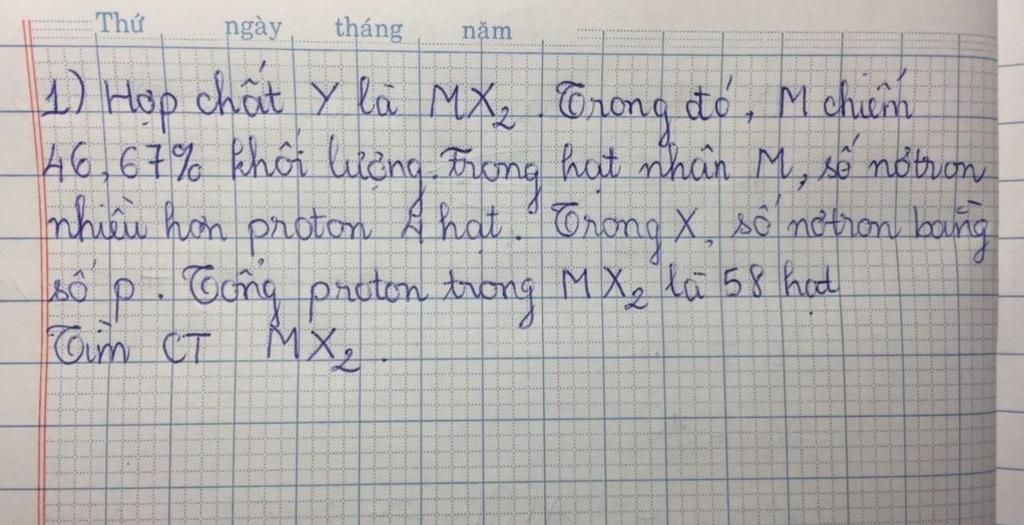 Thứ ngày tháng năm
1) Hợp chất Y là MX₂. Trong đó, M chiếm
46,67% khối lượng. Trong hạt nhân M, số nơtron
nhiều hơn proton 4 hạt. Trong X, số nơtron bằng
số p. Tổng proton trong MX₂ là 58 hạt
Tìm CT MX₂.